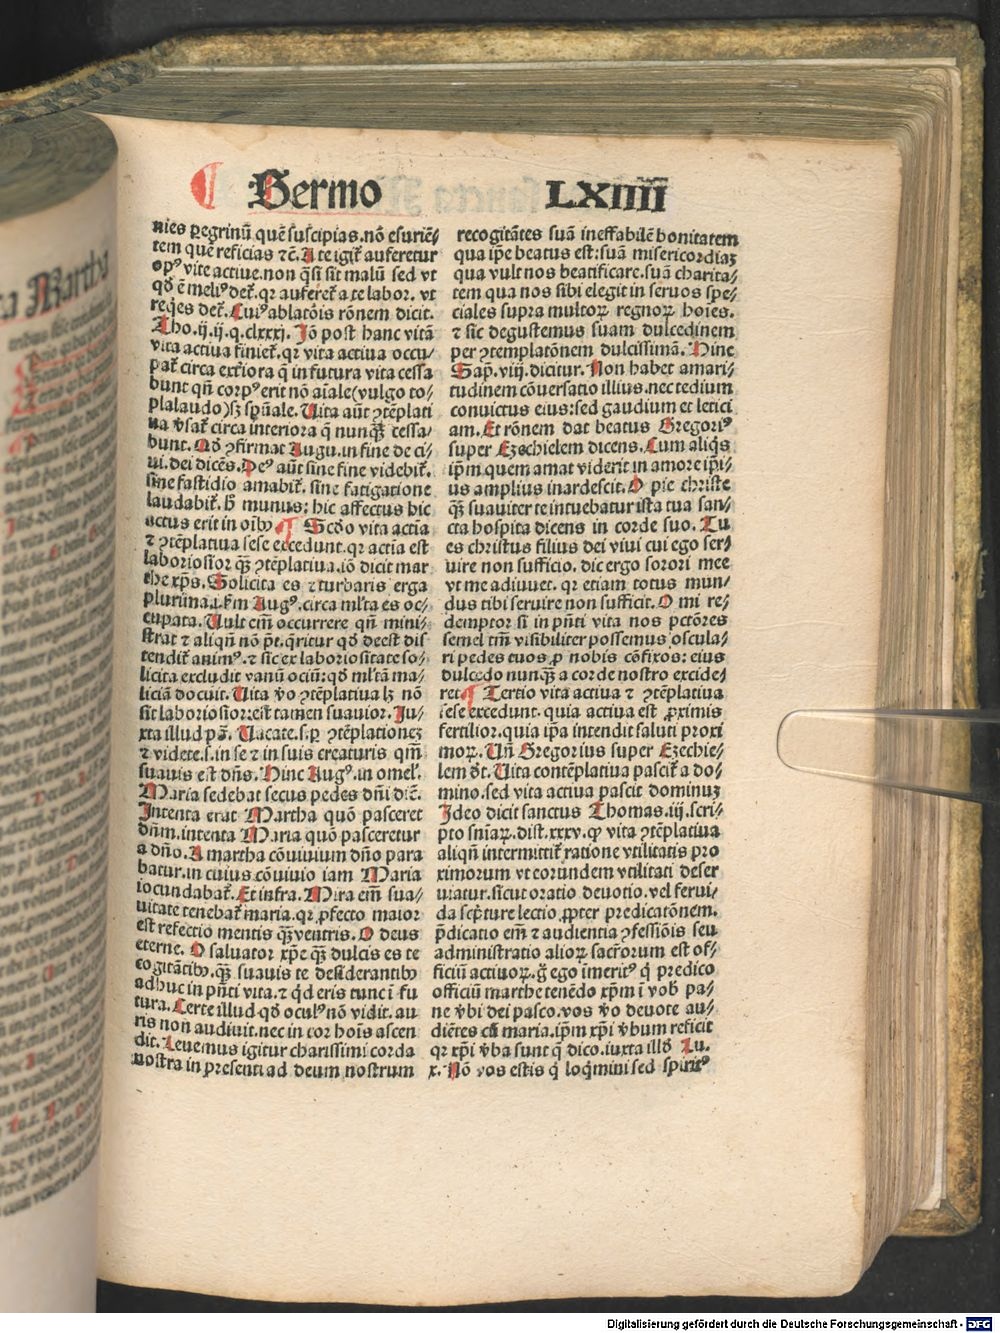 ¶ Sermo LXIIII
nies ꝑegrinū quē suscipias.nō esuriē/
tem quē reficias ⁊c̄.A te igit᷑ auferetur
opꝰ vite actiue.non q̄si sit malū sed vt
qd̓ ē meliꝰ det᷑.qꝛ auferet᷑ a te labor. vt
req̇es det᷑.Cuiꝰ ablatōis rōnem dicit.
Tho.ij.ij.q.clxxxj. Iō post hanc vitā
vita actiua finiet᷑.qꝛ vita actiua occu/
pat᷑ circa exteriora q̄ in futura vita cessa
bunt qn̄ corpꝰ erit nō aīale(vulgo to/
plalaudo)sꝫ spūale. Uita aūt ꝯtēplati
ua v̓sat᷑ circa interiora q̄ nunqꝫ̄ cessa/
bunt. Qd̓ ꝯfirmat Augu.in fine de ci/
ui.dei dicēs.Deꝰ aūt sine fine videbit᷑.
sine fastidio amabit᷑. sine fatigatione
laudabit᷑. h̓ munus: hic affectus hic
actus erit in oībꝫ ¶ Scd̓o vita actiua
⁊ ꝯtēplatiua sese excedunt.qꝛ actiua est
laboriosior qꝫ̄ ꝯtēplatiua.iō dicit mar
the xp̄s. Solicita es ⁊ turbaris erga
plurima.i.ẜm Augꝰ.circa ml̓ta es oc/
cupata. Uult em̄ occurrere qn̄ mini/
strat ⁊ aliqn̄ nō pōt.q̄ritur qd̓ deest dis
tendit᷑ animꝰ.⁊ sic ex laboriositate so/
licita excludit vanū ociū:qd̓ ml̓tā ma/
liciā docuit. Uita v̓o ꝯtēplatiua lꝫ nō
sit laboriosior:est tamen suauior. Iu/
xta illud pꝰ. Uacate.s.ꝑ ꝯtēplationeꝫ
⁊ videte.s.in se ⁊ in suis creaturis qm̄
suauis est dn̄s. Hinc Augꝰ.in omel᷑.
Maria sedebat secus pedes dn̄i dic̄.
Intenta erat Martha quō pasceret
dn̄m.intenta Maria quō pasceretur
a dn̄o. A martha cōuiuium dn̄o para
batur.in cuius cōuiuio iam Maria
iocundabat᷑. Et infra. Mira em̄ sua/
uitate tenebat᷑ maria.qꝛ ꝓfecto maior
est refectio mentis qꝫ̄ ventris. O deus
eterne. O saluator xp̄e qꝫ̄ dulcis es te
cogitātibꝫ.qꝫ̄ suauis te desiderantibꝫ
adhuc in pn̄ti vita.⁊ qd eris tunc ī fu
tura. Certe illud qd̓ oculꝰ nō vidit.au
ris non audiuit.nec in cor hoīs ascen
dit. Leuemus igitur charissimi corda
nostra in presenti ad deum nostrum
recogitātes suā ineffabilē bonitatem
qua ip̄e beatus est:suā misericordiaꝫ
qua vult nos beatificare.suā charita/
tem qua nos sibi elegit in seruos spe/
ciales supra multoꝝ regnoꝝ hoīes.
⁊ sic degustemus suam dulcedinem
per ꝯtemplatōnem dulcissimā. Hinc
Sap̄. viij.dicitur. Non habet amari/
tudinem cōuersatio illius.nec tedium
conuictus eius:sed gaudium et letici
am. Et rōnem dat beatus Gregoriꝰ
super Ezechielem dicens. Cum aliq̇s
ip̄m quem amat viderit in amore ip̄i/
us amplius inardescit. O pie christe
qꝫ̄ suauiter te intuebatur ista tua san/
cta hospita dicens in corde suo. Tu
es christus filius dei viui cui ego ser/
uire non sufficio. dic ergo sorori mee
vt me adiuuet. qꝛ etiam totus mun/
dus tibi seruire non sufficit. O mi re/
demptor si in pn̄ti vita nos pctōres
semel tm̄ visibiliter possemus oscula/
ri pedes tuos ꝓ nobis cōfixos: eius
dulcedo nunqꝫ̄ a corde nostro excide/
ret ¶ Tertio vita actiua ⁊ ꝯtēplatiua
sese excedunt. quia actiua est ꝓximis
fertilior.quia ip̄a intendit saluti proxi
moꝝ. Un̄ Gregorius super Ezechie/
lem d̓t. Uita contēplatiua pascit᷑ a do/
mino.sed vita actiua pascit dominuꝫ
Ideo dicit sanctus Thomas.iij.scri/
pto sn̄iaꝝ.dist.xxxv.ꝙ vita ꝯtēplatiua
aliqn̄ intermittit᷑ ratione vtilitatis pro
ximorum vt eorundem vtilitati deser
uiatur.sicut oratio deuotio.vel ferui/
da scpt̓ure lectio ꝓpter predicatōnem.
p̄dicatio em̄ ⁊ audientia ꝯfessiōis seu
administratio alioꝝ sacr̄orum est of/
ficiū actiuoꝝ.g̊ ego īmeritꝰ q̇ predico
officiū marthe tenēdo xp̄m ī vob̓ pa/
ne v̓bi dei pasco.vos v̓o deuote au/
diētes cū maria.ip̄m xp̄i v̓bum reficit
qꝛ xp̄i v̓ba sunt q̄ dico.iuxta illd̓ Lu.
x. Nō vos estis q̇ loq̇mini sed spiritꝰ
Digitalisierung gefördert durch die Deutsche Forschungsgemeinschaft - DFG